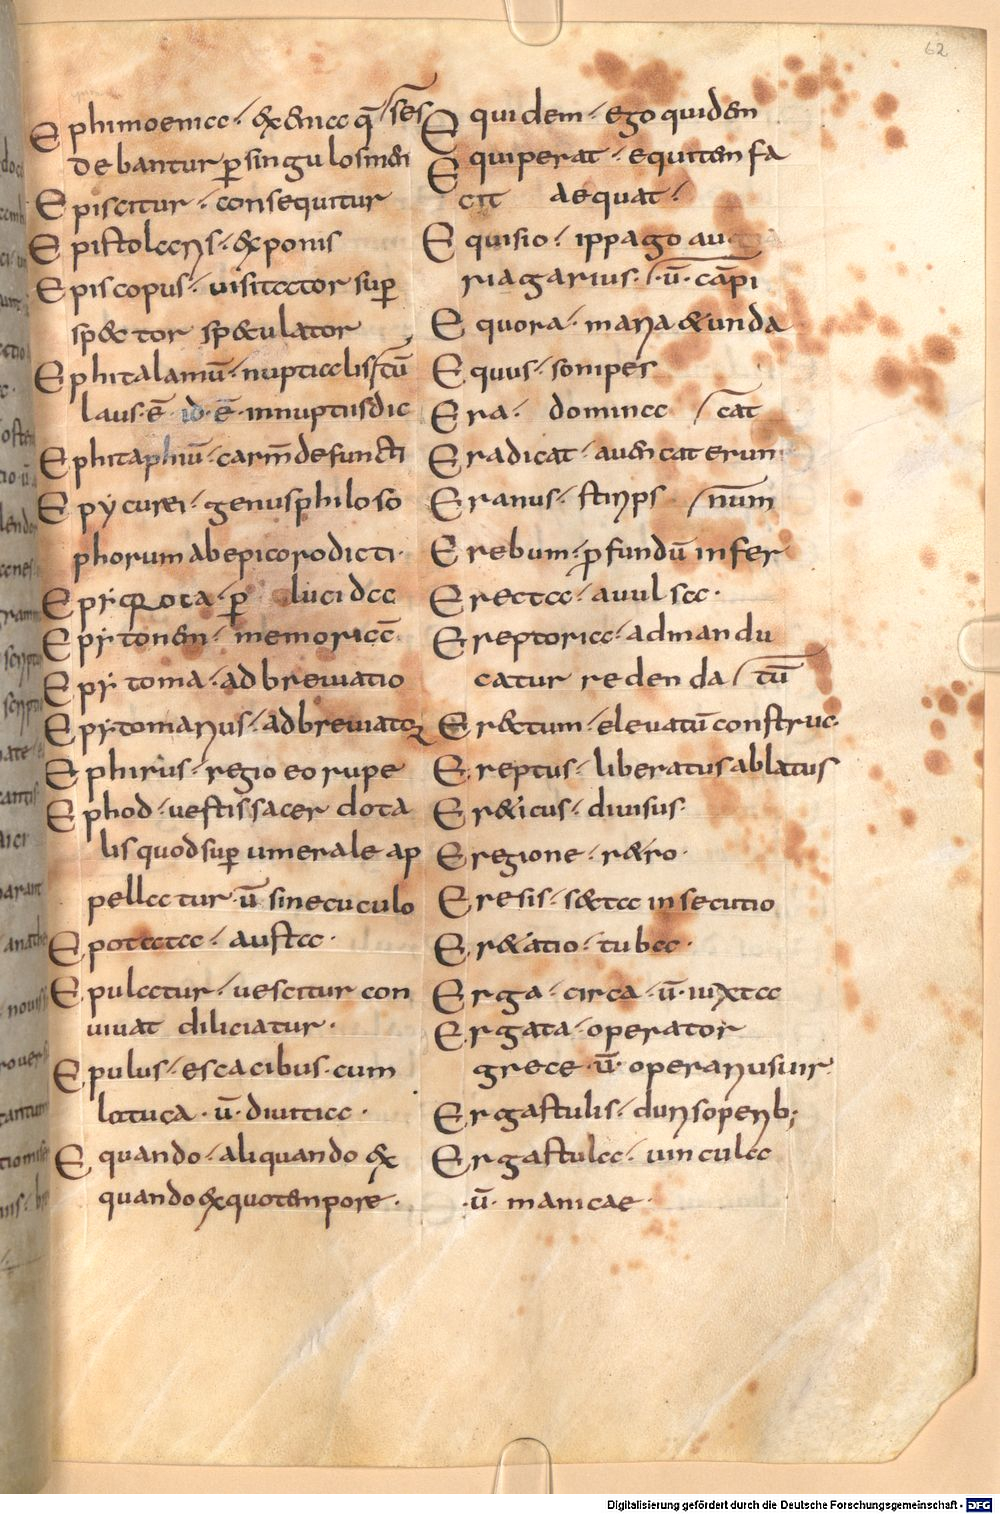 62
Ephimoenia · exenia q̄ ses
debantur ꝑ singulos men
Episcitur · consequitur
Epistolaris · exponis
Episcopus · uisitator suꝑ
spector speculator
Ephitalamū · nuptialis tū
laus · ē · id · ē · in nuptiis dic
Ephitaphiū · carm̄ defuncti
Epycurei · genus philoso
phorum ab epicoro dicti ·
ꝑ lucida
Epytonen · memoriā
Epytoma · adbreuiatio
Epytomarius · adbreuiator
Ephirus · regio eorupe
Ephod · uestis sacer dota
lis quod suꝑ umerale ap
pellatur · ū · sine cuculo
Epotata · austa ·
Epulatur · uescitur con
uiuat diliciatur ·
Epulus · esca cibus · cum
· ū · diuitia ·
Equando · aliquando ex
quando ex quo tenpore ·
Equidem · ego quidem
Equiperat · equitem fa
cit aequat ·
Equisio · ippago
riagarius · ū · cāpi
Equora · maria & unda
Equus · sonipes
Era · domina cāt
Eradicat · auencat erun
Eranus · stirps num̄
Erebum · ꝓfundū infer
Erecta · auulsa ·
Ereptorica · admandu
catur redenda tū
Erectum · eleuatū construc
Ereptus · liberatus ablatus
Ereticus · diuisus ·
Eregione · retro ·
Eresis · secta in secutio
Er&atio · tuba ·
Erga · circa · ū · iuxta
Ergata · operator
grece · ū · operarius uir
Ergastulis · duris operib;
Ergastula · uincula
· ū · manicae ·
Digitalisierung gefördert durch die Deutsche Forschungsgemeinschaft - DFG